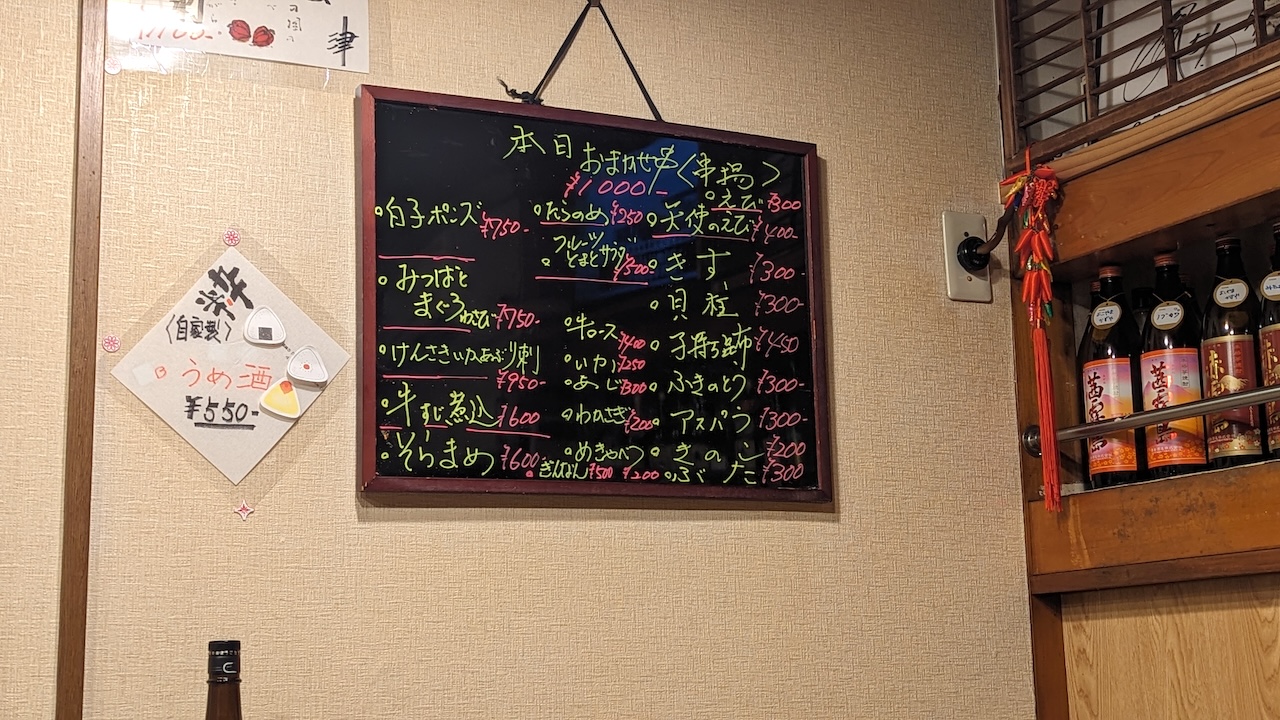 津
本日おまかせ串〈串揚〉
¥1000-
白子ポンズ ¥750-
みつばと
まぐろわさび ¥750-
けんさきいかあぶり刺
¥950-
牛すじ煮込 ¥600
そらまめ ¥600
たらのめ ¥250
フルーツ
とまとサラダ
¥500
牛ロース ¥400
いか ¥250
あじ ¥300
わかさぎ ¥200
めきゃべつ
¥200
ぎんなん ¥500
えび ¥300
天使のえび ¥400-
きす ¥300-
貝柱 ¥300
子持ち昆布 ¥450
ふきのとう ¥300-
アスパラ ¥300-
きのこ ¥200
ぶた ¥300
粋
〈自家製〉
うめ酒
¥550-
茜霧島
茜霧島
赤霧島